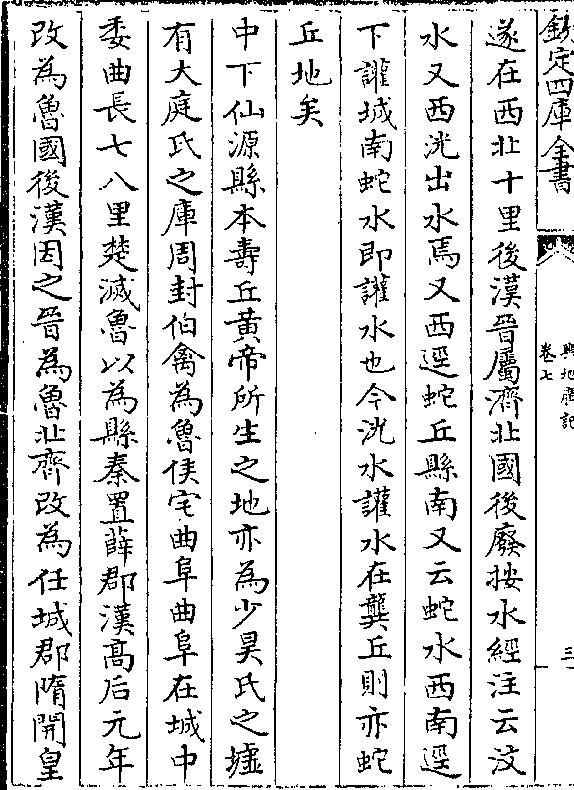 欽定四庫全書
輿地廣記
卷七
三
遂在西北十里後漢晉屬濟北國後廢按水經注云汶
水又西洸出水焉又西逕蛇丘縣南又云蛇水西南逕
下讙城南蛇水即讙水也今洸水讙水在龔丘則亦蛇
丘地矣
中下仙源縣本壽丘黃帝所生之地亦為少昊氏之墟
有大庭氏之庫周封伯禽為魯侯宅曲阜曲阜在城中
委曲長七八里楚滅魯以為縣秦置薛郡漢高后元年
改為魯國後漢因之晉為魯北齊改為任城郡隋開皇